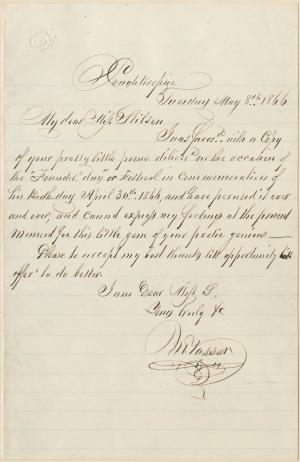 Poughkeepsie
Tuesday May 8th 1866
My dear Miss Stilson
I was favored with a Copy
of your pretty little poem on the occasion of
the "Founder's day" or Festival in Commemoration of
his Birth-day April 30th 1866, and have perused it over
and over, and Cannot express my feelings at the present
moment for this little gem of your poetic genius—
Please to accept my best thanks till opportunity
offers to do better.
I am Dear Miss S.
Yours truly &c
M Vassar